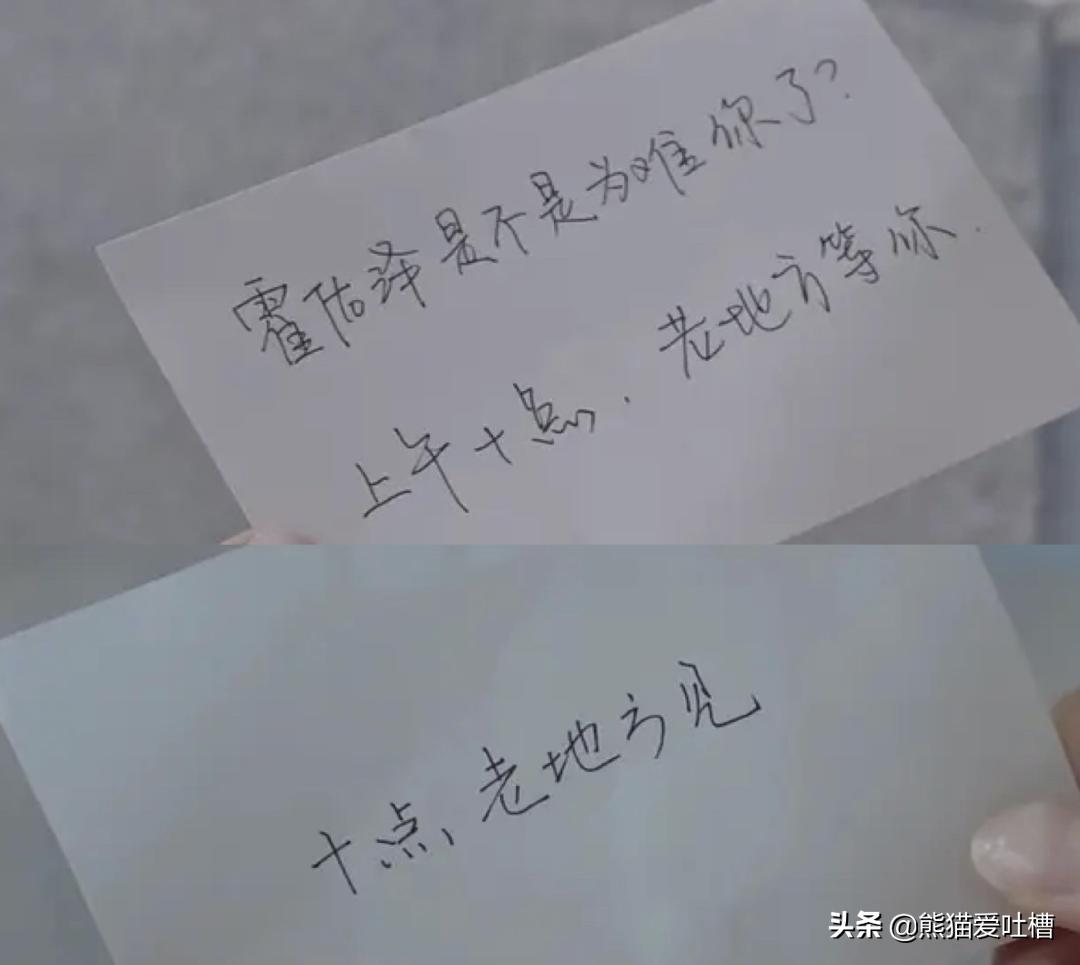 霍佑泽是不是为难你了?
上午十点.老地方等你.
十点、老地方见
头条 @熊猫爱吐槽